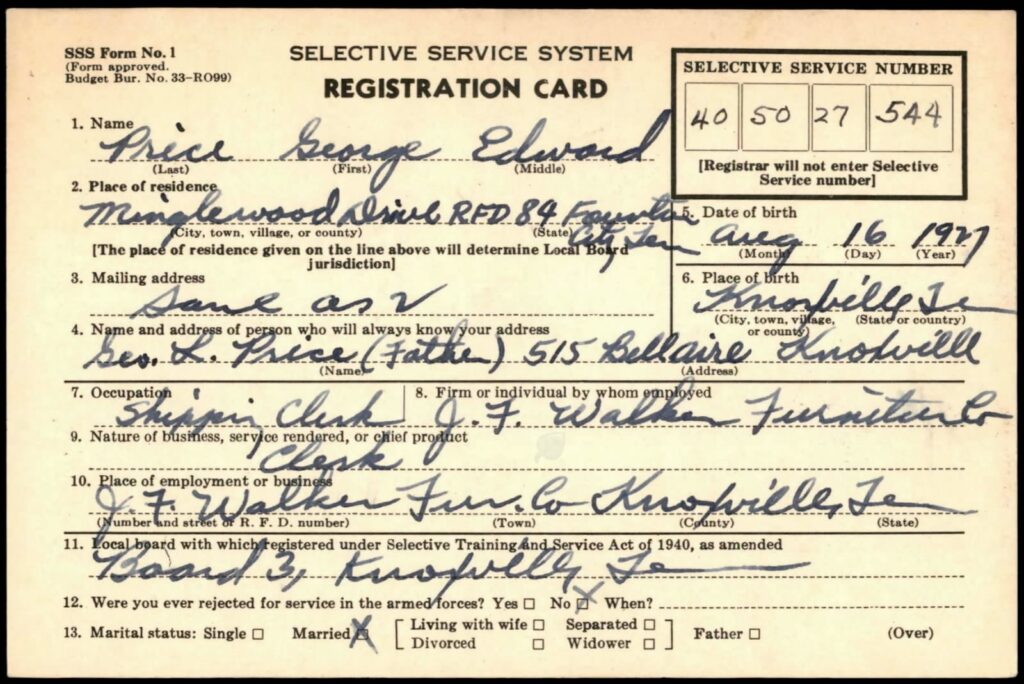 SSS Form No. 1
(Form approved.
Budget Bur. No. 33-RO99)
SELECTIVE SERVICE SYSTEM
REGISTRATION CARD
SELECTIVE SERVICE NUMBER
40 50 27 544
[Registrar will not enter Selective
Service number]
1. Name
Price George Edward
(Last) (First) (Middle)
2. Place of residence
Minglewood Drive RFD 84 Fountin
City, Ten
(City, town, village, or county) (State)
[The place of residence given on the line above will determine Local Board
jurisdiction]
5. Date of birth
Aug 16 1927
(Month) (Day) (Year)
3. Mailing address
Same as 2
6. Place of birth
Knoxville, Te
(City, town, village, (State or country)
or county)
4. Name and address of person who will always know your address
Geo. L. Price (Father) 515 Bellaire Knoxville
(Name) (Address)
7. Occupation
Shipping Clerk
8. Firm or individual by whom employed
J. F. Walker Furniture Co
9. Nature of business, service rendered, or chief product
Clerk
10. Place of employment or business
J. F. Walker Fur. Co Knoxville, Te
(Number and street or R. F. D. number) (Town) (County) (State)
11. Local board with which registered under Selective Training and Service Act of 1940, as amended
Board 3, Knoxville, Te
12. Were you ever rejected for service in the armed forces? Yes ☐ No ☒ When?
13. Marital status: Single ☐ Married ☒ [ Living with wife ☐ Separated ☐ ] Father ☐ (Over)
Divorced ☐ Widower ☐